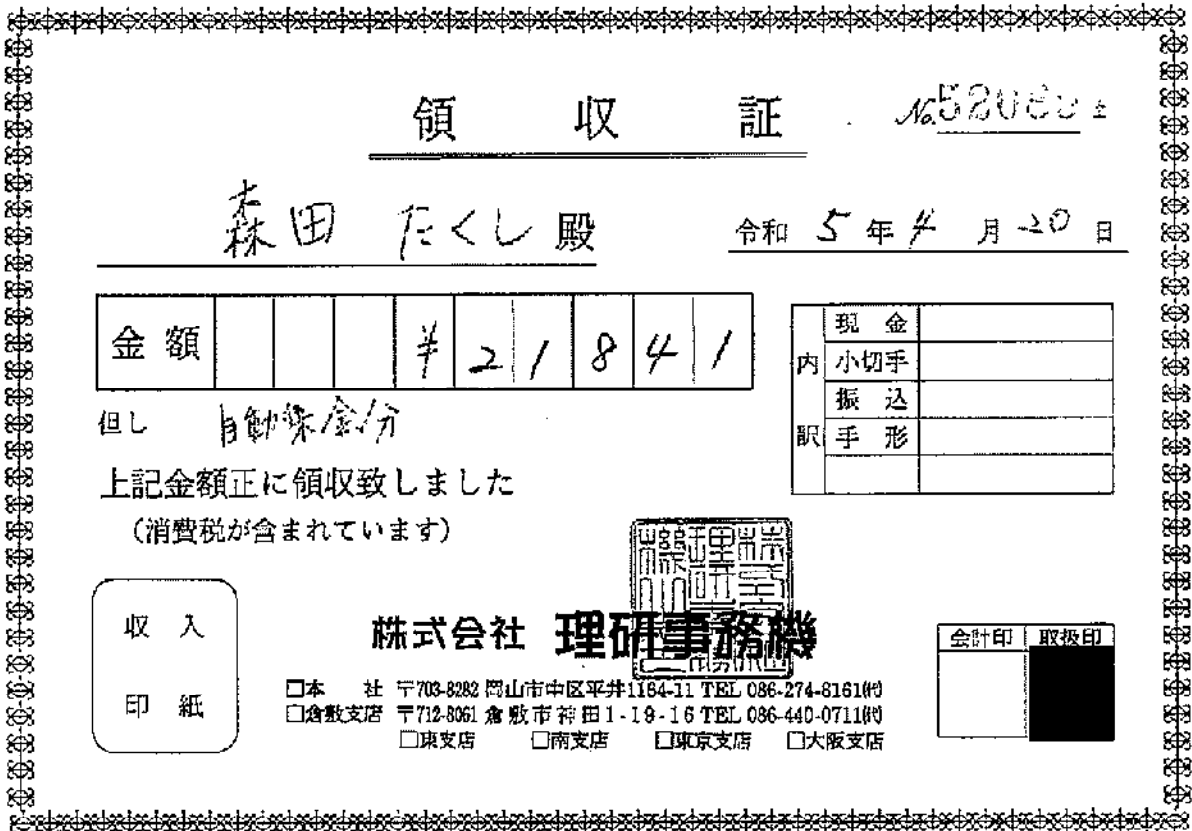 領収証
No.
森田 たくし 殿
令和 5 年 4 月 20 日
金額 ¥21841
但し 自動 金分
上記金額正に領収致しました
(消費税が含まれています)
内訳
現金
小切手
振込
手形
収入
印紙
株式会社 理研事務機
□本 社 〒703-8282 岡山市中区平井1184-11 TEL 086-274-8161㈹
□倉敷支店 〒712-8061 倉敷市神田1-19-16 TEL 086-440-0711㈹
□東支店 □南支店 □東京支店 □大阪支店
会計印 取扱印